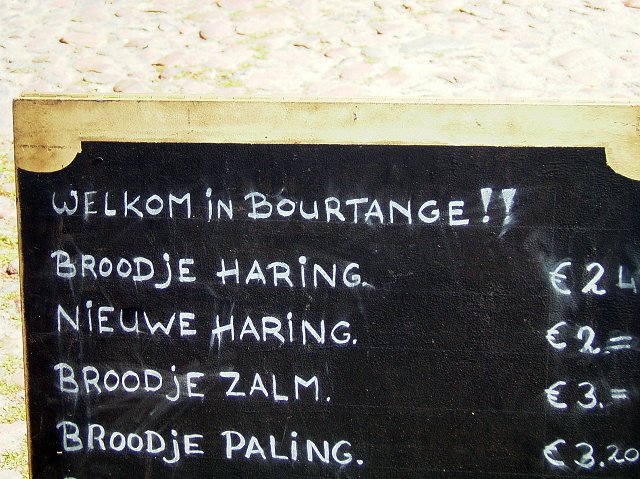 WELKOM iN BOURTANGE!!
BROODjE HARiNG. € 2 4
NiEUWE HARiNG. € 2.=
BROODjE ZALM. € 3.=
BROODjE PALiNG. € 3.20